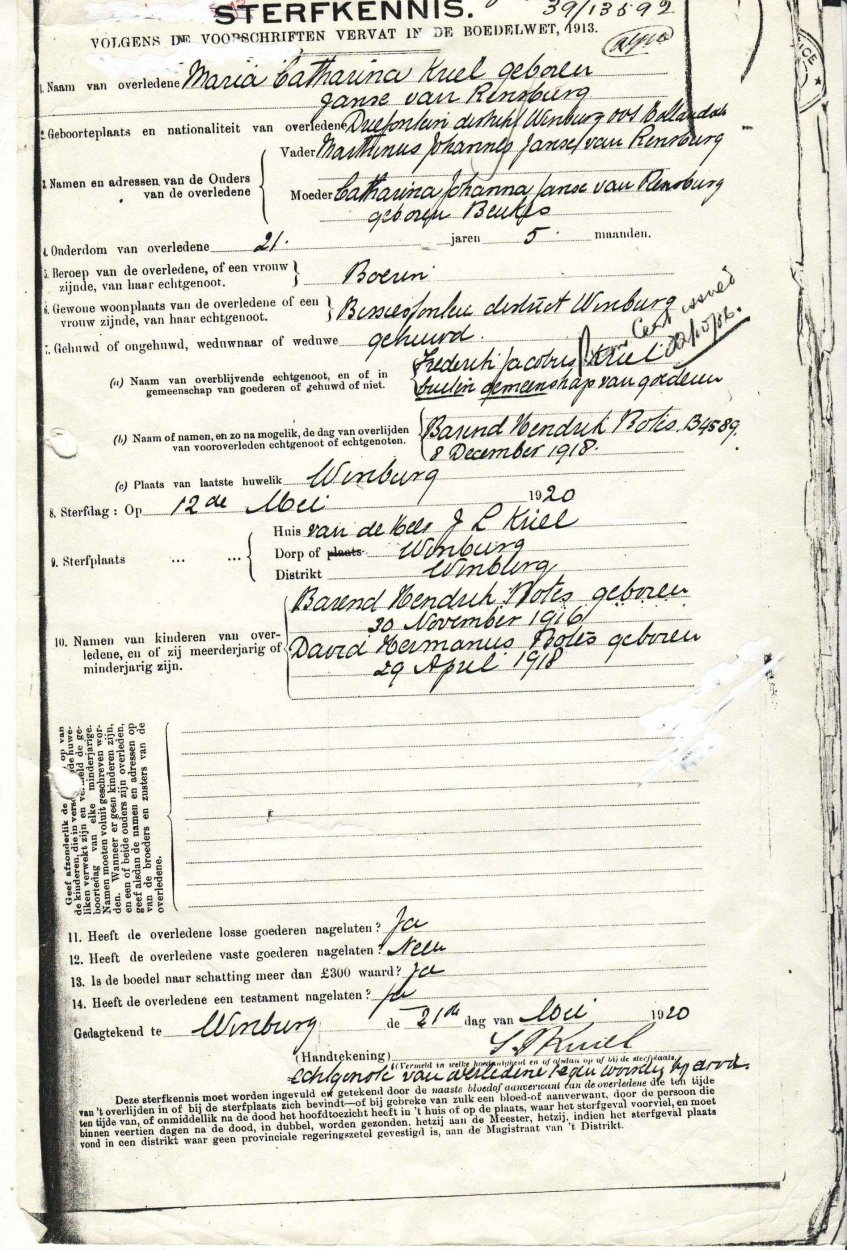 STERFKENNIS.
39/13592
VOLGENS DE VOORSCHRIFTEN VERVAT IN DE BOEDELWET, 1913.
1. Naam van overledene Maria Catharina Kriel geboren
Janse van Rensburg
2. Geboorteplaats en nationaliteit van overledene Driefontein district Winburg OVS Hollands
3. Namen en adressen van de Ouders van de overledene
Vader Marthinus Johannes Janse van Rensburg
Moeder Catharina Johanna Janse van Rensburg
geboren Beukes
4. Onderdom van overledene 21 jaren 5 maanden.
5. Beroep van de overledene, of een vrouw zijnde, van haar echtgenoot. Boeren
6. Gewone woonplaats van de overledene of een vrouw zijnde, van haar echtgenoot. district Winburg
Cert issued
7. Gehuwd of ongehuwd, weduwnaar of weduwe gehuwd.
(a) Naam van overblijvende echtgenoot, en of in gemeenschap van goederen of gehuwd of niet.
Frederik Jacobus Kriel
buiten gemeenschap van goederen
(b) Naam of namen, en zo na mogelik, de dag van overlijden van vooroverleden echtgenoot of echtgenoten.
Barend Hendrik Botes B4589.
8 December 1918.
(c) Plaats van laatste huwelik Winburg
8. Sterfdag: Op 12de Mei 1920
9. Sterfplaats ... ...
Huis van de Heer J L Kriel
Dorp of plaats Winburg
Distrikt Winburg
10. Namen van kinderen van overledene, en of zij meerderjarig of minderjarig zijn.
Barend Hendrik Botes geboren
20 November 1916
David Hermanus Botes geboren
29 April 1918
Geef afzonderlik de op van
de kinderen, die in de huwe-
liken verwekt zijn en vermeld de ge-
boortedag van elke minderjarige.
Namen moeten voluit geschreven wor-
den. Wanneer er geen kinderen zijn,
en een of beide ouders zijn overleden,
geef alsdan de namen en adressen op
van de broeders en zusters van de
overledene.
11. Heeft de overledene losse goederen nagelaten? Ja
12. Heeft de overledene vaste goederen nagelaten? Neen
13. Is de boedel naar schatting meer dan £300 waard? Ja
14. Heeft de overledene een testament nagelaten? Ja
Gedagtekend te Winburg de 21ste dag van Mei 1920
(Handtekening) Kriel
(Vermeld in welke hoedanigheid en of alsdan op of bij de sterfplaats.
Echtgenoot van overledene tegenwoordig bij dood.
Deze sterfkennis moet worden ingevuld en getekend door de naaste bloedof aanverwant van de overledene die ten tijde
van 't overlijden in of bij de sterfplaats zich bevindt—of bij gebreke van zulk een bloed-of aanverwant, door de persoon die
ten tijde van, of onmiddellik na de dood het hoofdtoezicht heeft in 't huis of op de plaats, waar het sterfgeval voorviel, en moet
binnen veertien dagen na de dood, in dubbel, worden gezonden. hetzij aan de Meester, hetzij, indien het sterfgeval plaats
vond in een distrikt waar geen provinciale regeringszetel gevestigd is, aan de Magistraat van 't Distrikt.